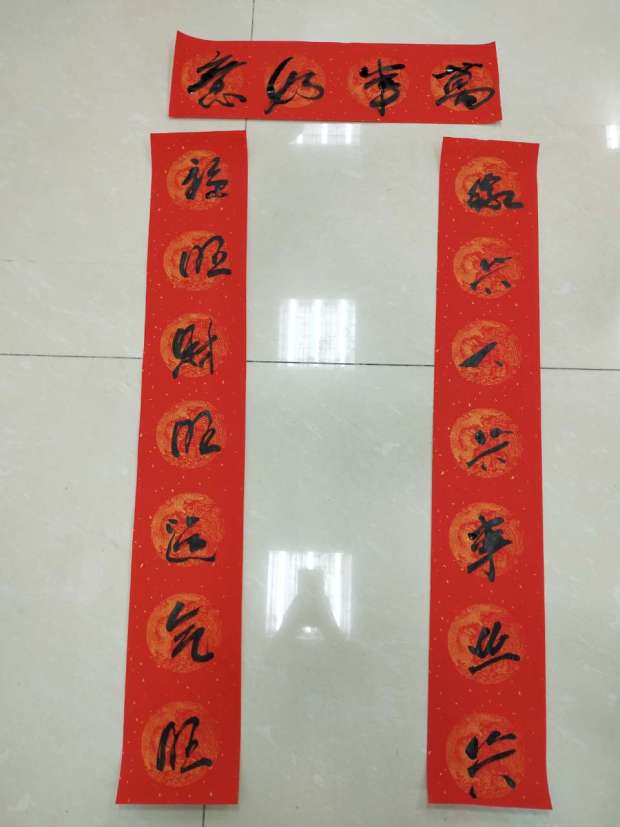 萬事如意
家兴人兴事业兴
福旺财旺运气旺